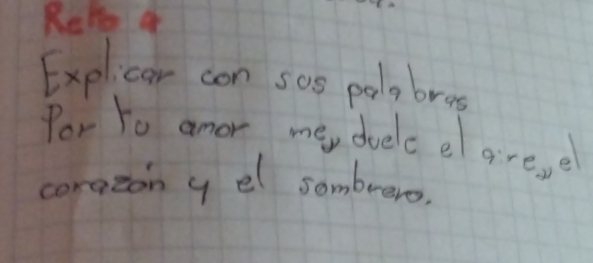 Reto 4
Explicar con sos palabras
Por tu amor me duele el aire, el
corazón y el sombrero.